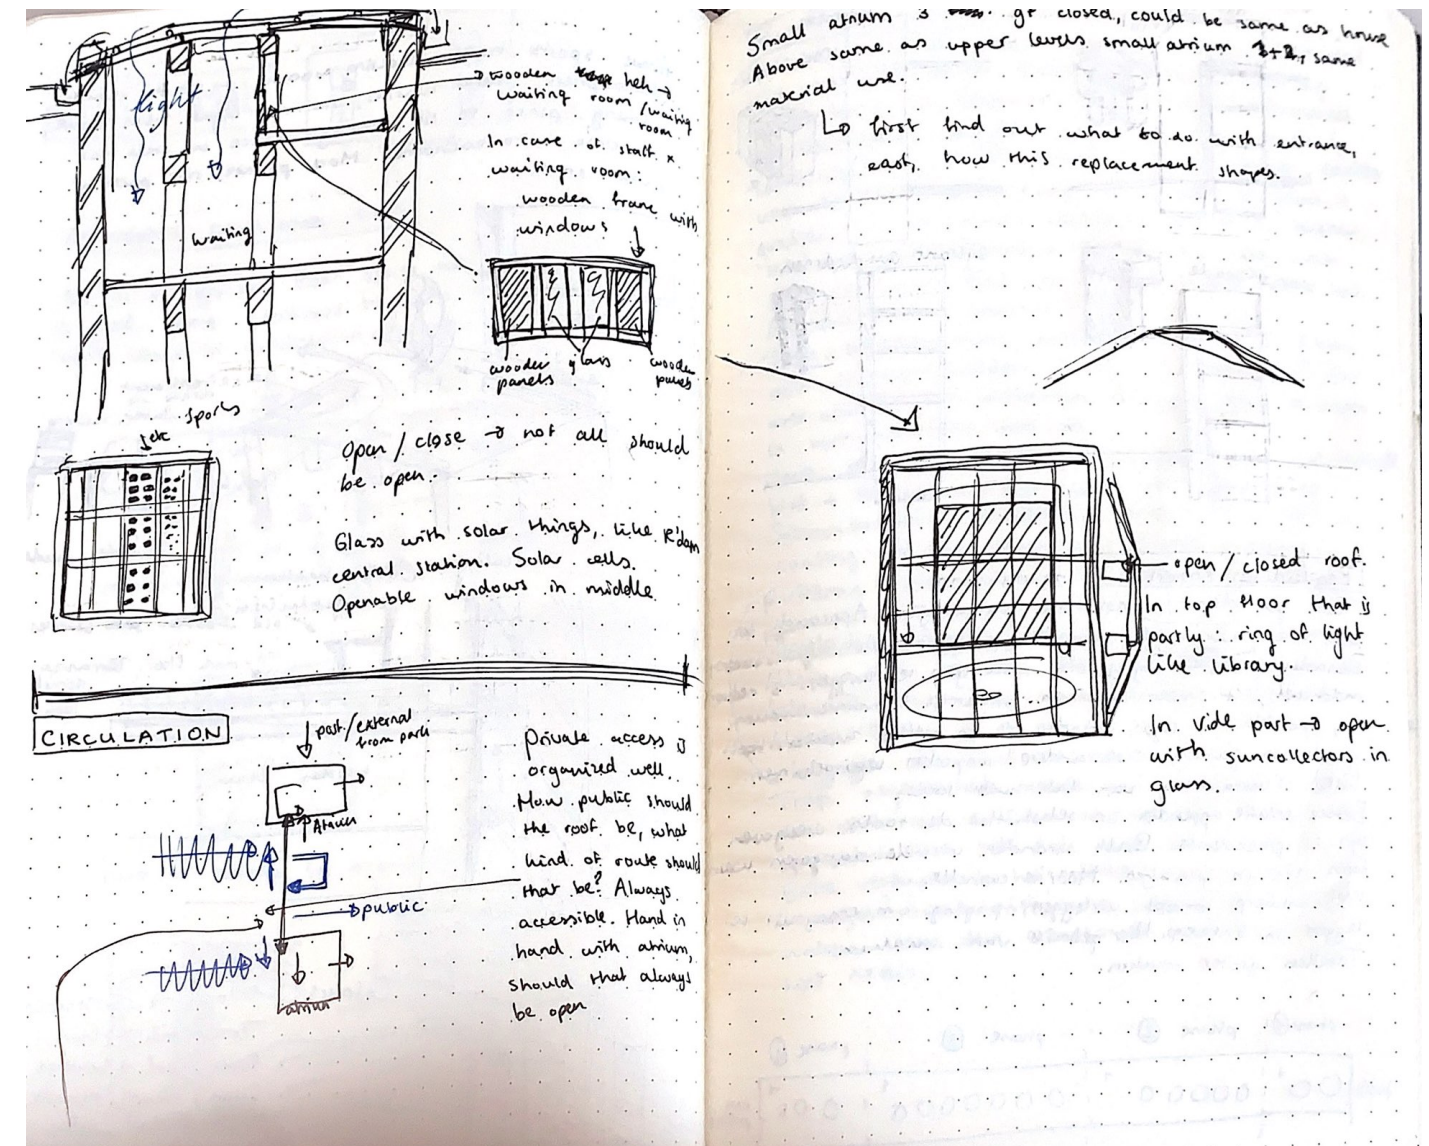 light
waiting
wooden hek →
waiting room /waiting
room
In case of staff x
waiting room:
wooden frame with
windows
wooden
panels
glass
wooden
panels
sports
etc
Open / close → not all should
be open.
Glass with solar things, like R'dam
central station. Solar cells.
Openable windows in middle
CIRCULATION
part/external
from park
Atrium
public
atrium
Private access is
organized well.
How public should
the roof be, what
kind of route should
that be? Always
accessible. Hand in
hand with atrium,
should that always
be open
Small atrium 3 gf closed, could be same as house
Above same as upper levels small atrium 1+2, same
material use.
↳ first find out what to do with entrance,
east, how this replacement shapes.
open / closed roof.
In top floor that is
partly: ring of light
like library.
In vide part → open
with suncollectors in
glass.